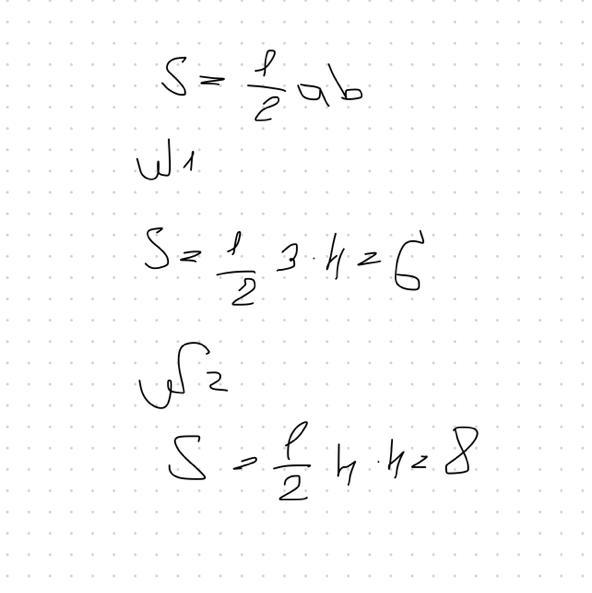 S = 1/2 ab
№1
S = 1/2 3 · 4 = 6
№2
S = 1/2 4 · 4 = 8